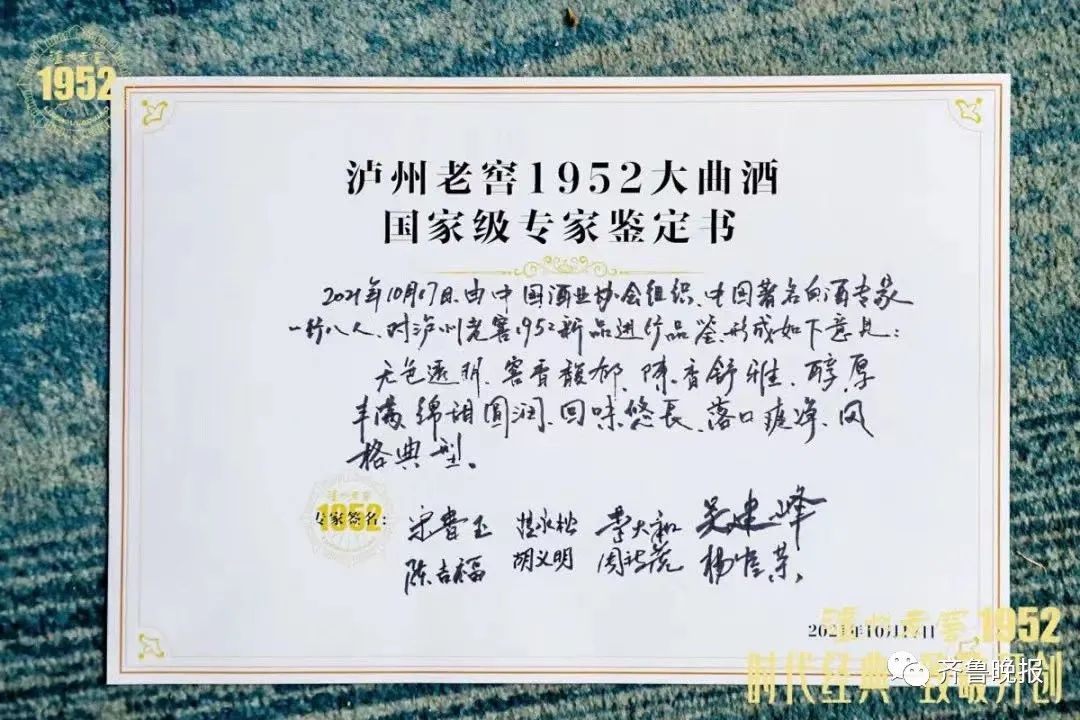 泸州老窖
1952
泸州老窖1952大曲酒
国家级专家鉴定书
2021年10月17日,由中国酒业协会组织、中国著名白酒专家
一行八人,对泸州老窖1952新品进行品鉴,形成如下意见:
无色透明、窖香馥郁、陈香舒雅、醇厚
丰满、绵甜圆润、回味悠长、落口爽净、风
格典型。
泸州老窖
1952
专家签名:
宋书玉 李大和 吴建峰
陈吉福 胡义明 杨官荣
2021年10月17日
泸州老窖1952
时代经典 致敬开创
齐鲁晚报